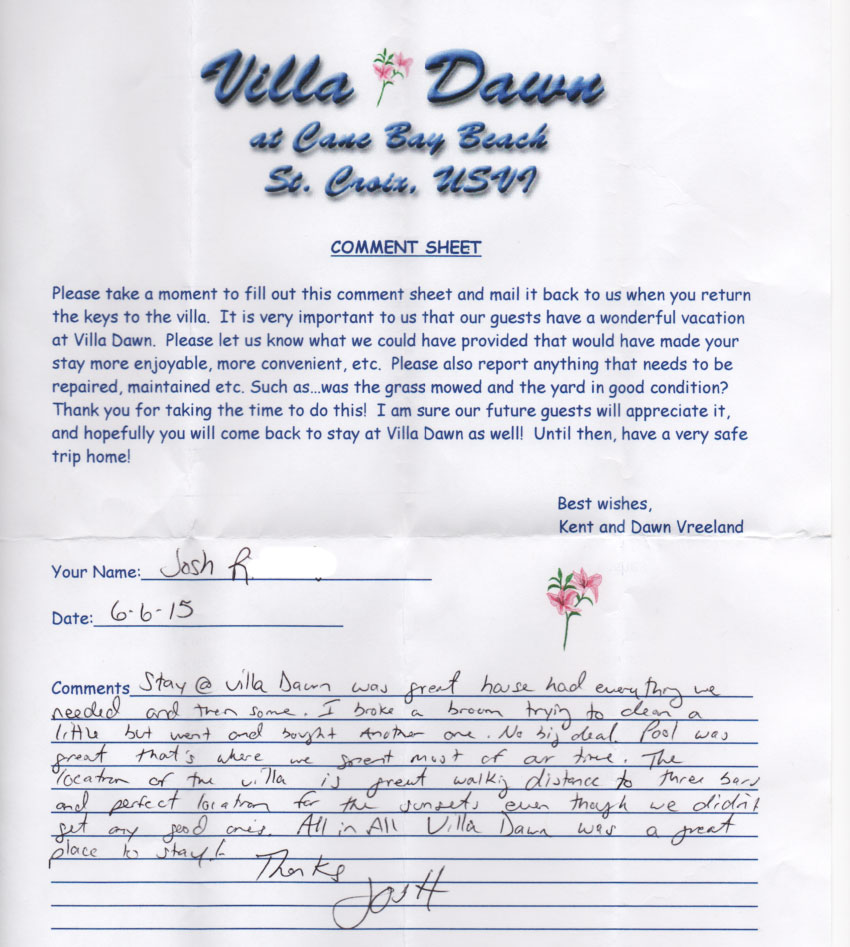 Villa Dawn
at Cane Bay Beach
St. Croix, USVI
COMMENT SHEET
Please take a moment to fill out this comment sheet and mail it back to us when you return
the keys to the villa. It is very important to us that our guests have a wonderful vacation
at Villa Dawn. Please let us know what we could have provided that would have made your
stay more enjoyable, more convenient, etc. Please also report anything that needs to be
repaired, maintained etc. Such as...was the grass mowed and the yard in good condition?
Thank you for taking the time to do this! I am sure our future guests will appreciate it,
and hopefully you will come back to stay at Villa Dawn as well! Until then, have a very safe
trip home!
Best wishes,
Kent and Dawn Vreeland
Your Name: Josh R.
Date: 6-6-15
Comments Stay @ Villa Dawn was great house had everything we
needed and then some. I broke a broom trying to clean a
little but went and bought another one. No big deal. Pool was
great that's where we spent most of our time. The
location of the villa is great walking distance to three bars
and perfect location for the sunsets even though we didn't
get any good ones. All in All Villa Dawn was a great
place to stay!
Thanks
JosH